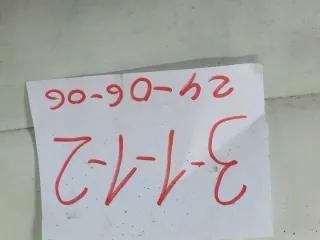 3-1-1-2
24-06-06